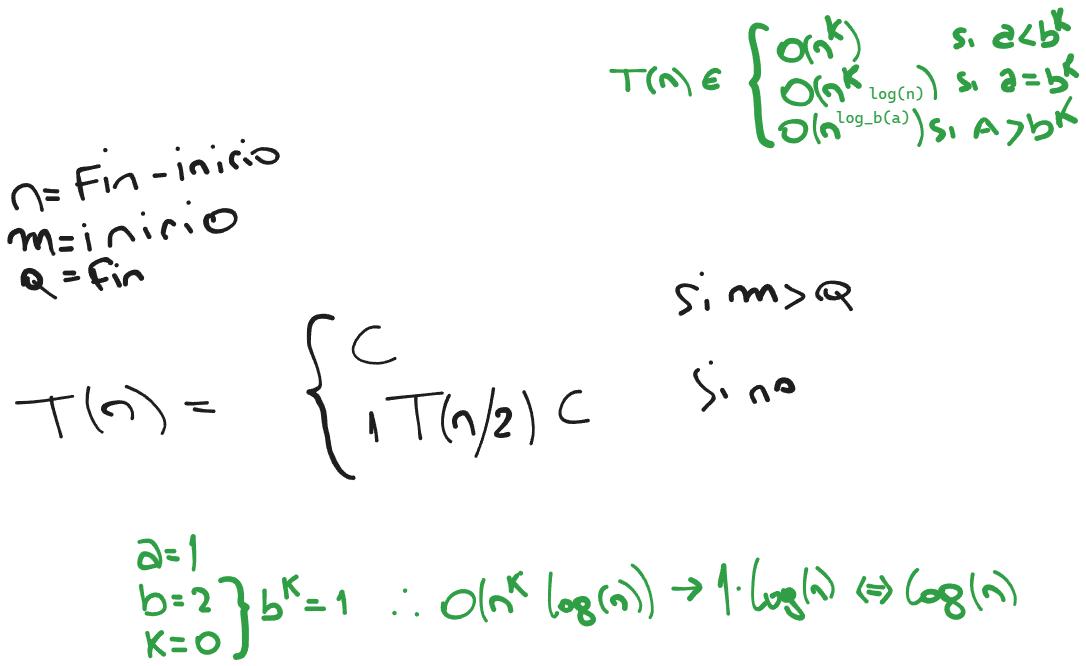 T(n) ∈ { O(n^K) si a<b^K
O(n^K log(n)) si a=b^K
O(n^log_b(a)) si A>b^K
n= Fin - inicio
m=inicio
Q=Fin
T(n) = { C si m>Q
1T(n/2) C si no
a=1
b=2 } b^K=1 ∴ O(n^K log(n)) → 1·log(n) ⇔ log(n)
K=0